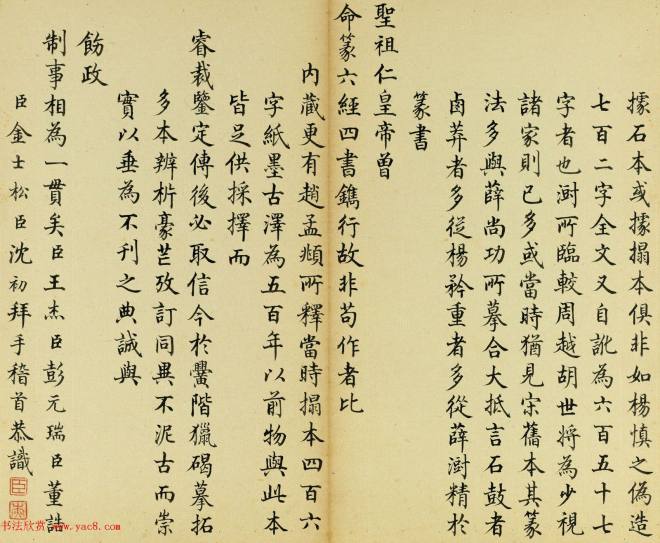 據石本或據搨本俱非如楊慎之偽造
七百二字全文又自訛為六百五十七
字者也澍所臨較周越胡世將為少視
諸家則已多或當時猶見宋舊本其篆
法多與薛尚功所摹合大抵言石鼓者
鹵莽者多從楊矜重者多從薛澍精於
篆書
聖祖仁皇帝曾
命篆六經四書鐫行故非苟作者比
內藏更有趙孟頫所釋當時搨本四百六
字紙墨古澤為五百年以前物與此本
皆足供採擇而
睿裁鑒定傳後必取信今於黌階獵碣摹拓
多本辨析豪芒攷訂同異不泥古而崇
實以垂為不刊之典誠與
飭政
制事相為一貫矣臣王杰臣彭元瑞臣董誥
臣金士松臣沈初拜手稽首恭識
书法欣赏 www.yac8.com